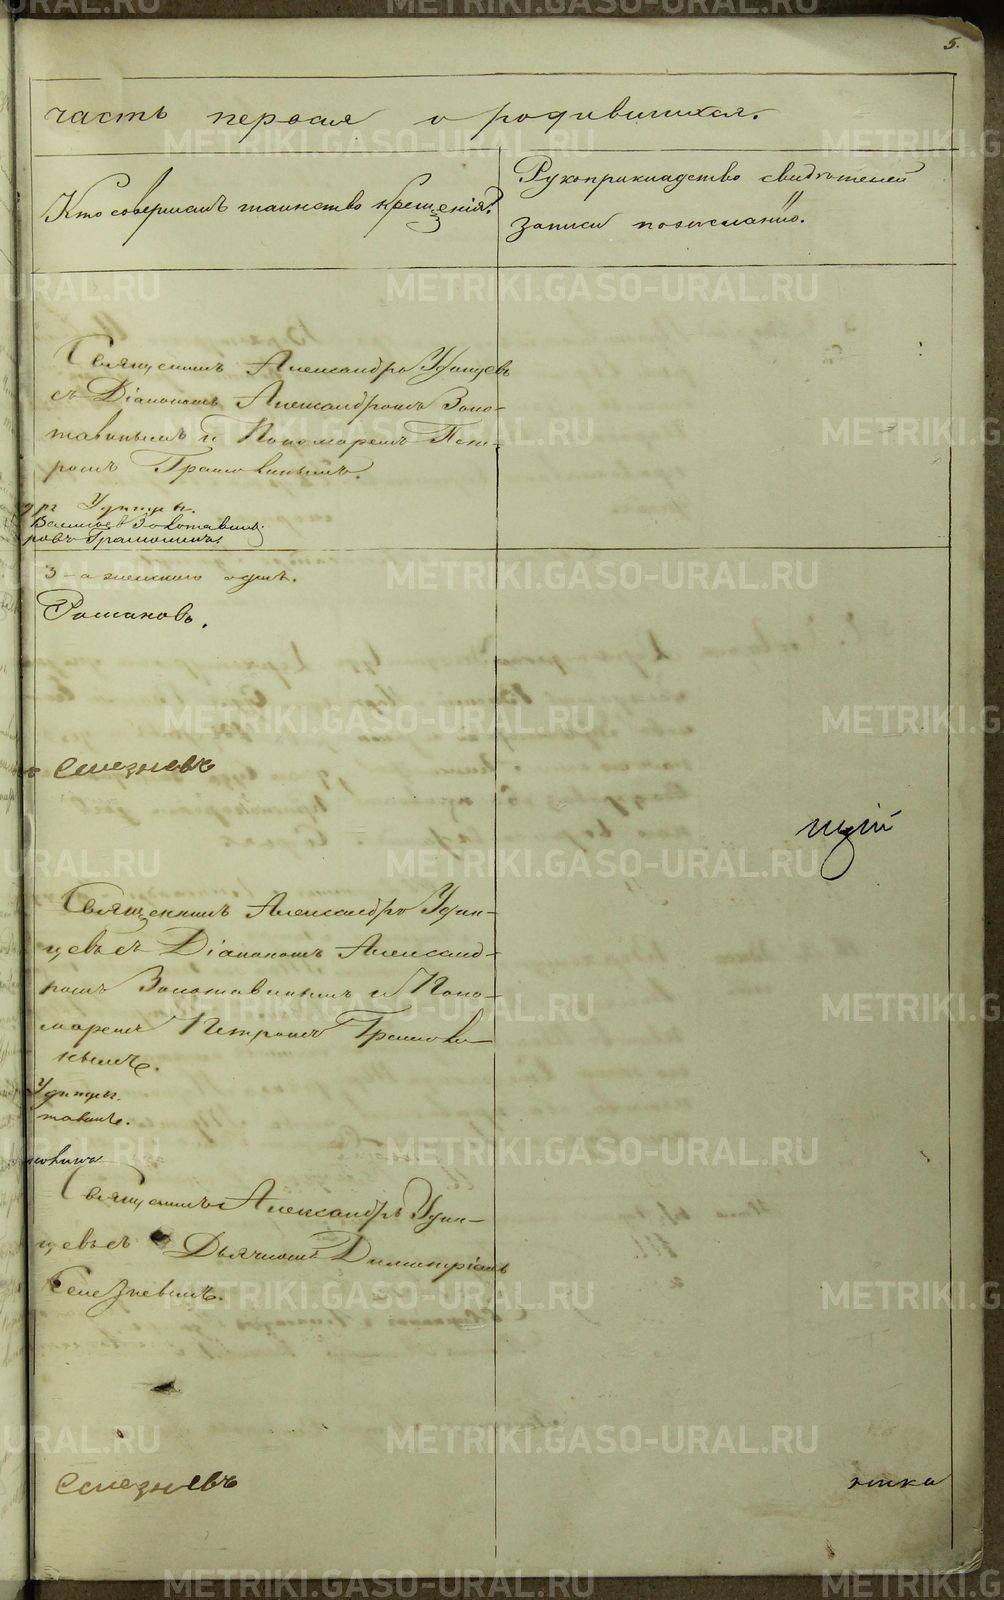 5.
часть первая о родившихся.
Кто совершалъ таинство крещенія?
Рукоприкладство свидѣтелей
записи по желанію.
Священникъ Александръ Удинцевъ
съ Діакономъ Александромъ Золо-
тавинымъ и Пономаремъ Пет-
ромъ Грамовинымъ.
Удинцы.
Золотавинъ.
3-а женскаго
Романовъ.
Селезневъ
Священникъ Александръ Удин-
цевъ съ Діакономъ Александ-
ромъ Золотавинымъ и Поно-
маремъ Петромъ Грамови-
нымъ.
Удинцы.
тавинъ.
мовинъ
Священникъ Александръ Удин-
цевъ съ Дьячкомъ Димитріемъ
Селезневымъ.
Селезневъ
METRIKI.GASO-URAL.RU